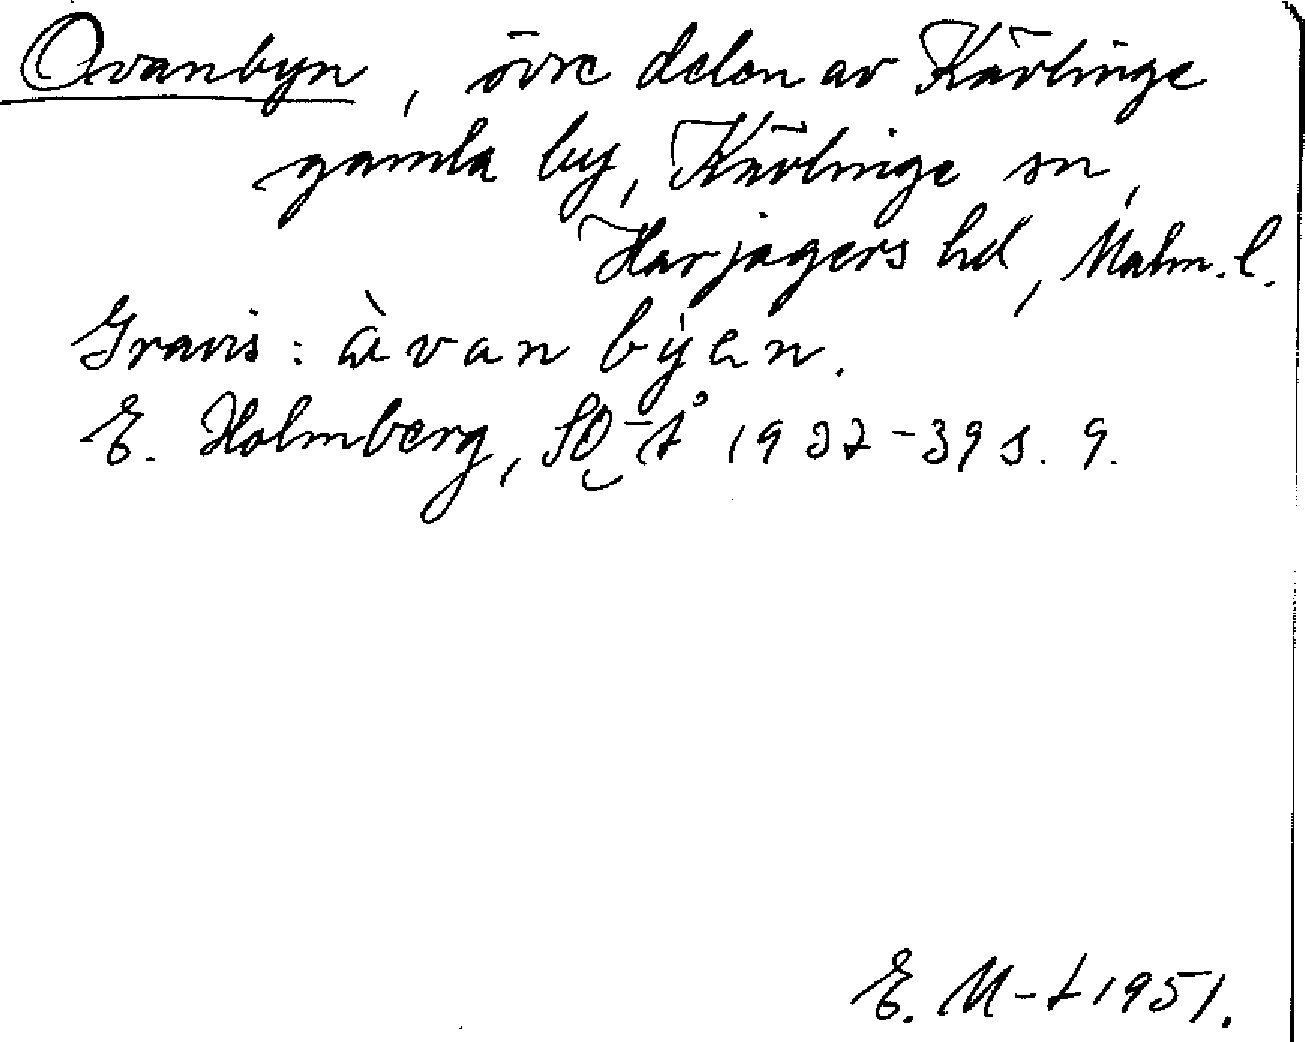 Ovanbyn, övre delen av Kävlinge
gamla by, Kävlinge sn,
Harjagers hd, Malm. l.
Gravis: àvan býen.
E. Holmberg, SO-tÅ 1937-39 s. 9.
E. M-t 1951.